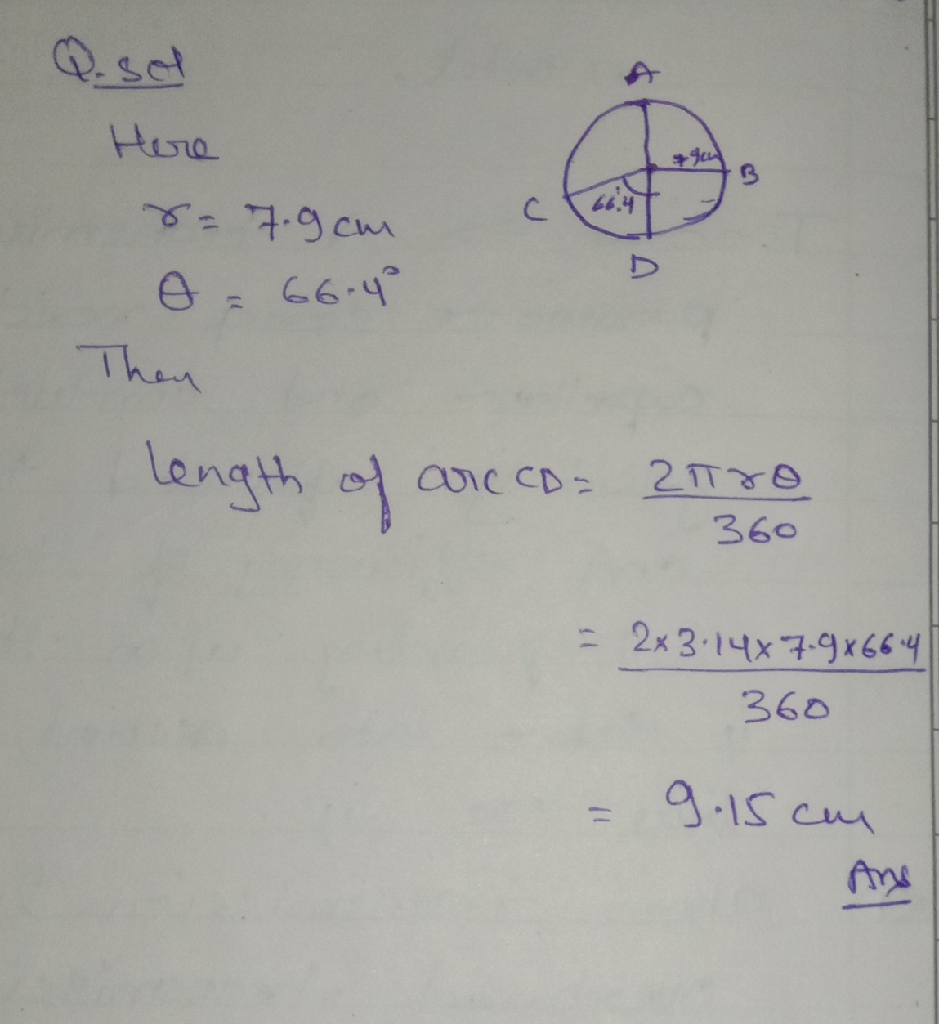 Q. sol
A
Here
7.9cm
B
r = 7.9 cm
C
66.4
D
θ = 66.4°
Then
length of arc CD = 2πrθ
360
= 2×3.14×7.9×66.4
360
= 9.15 cm
Ans